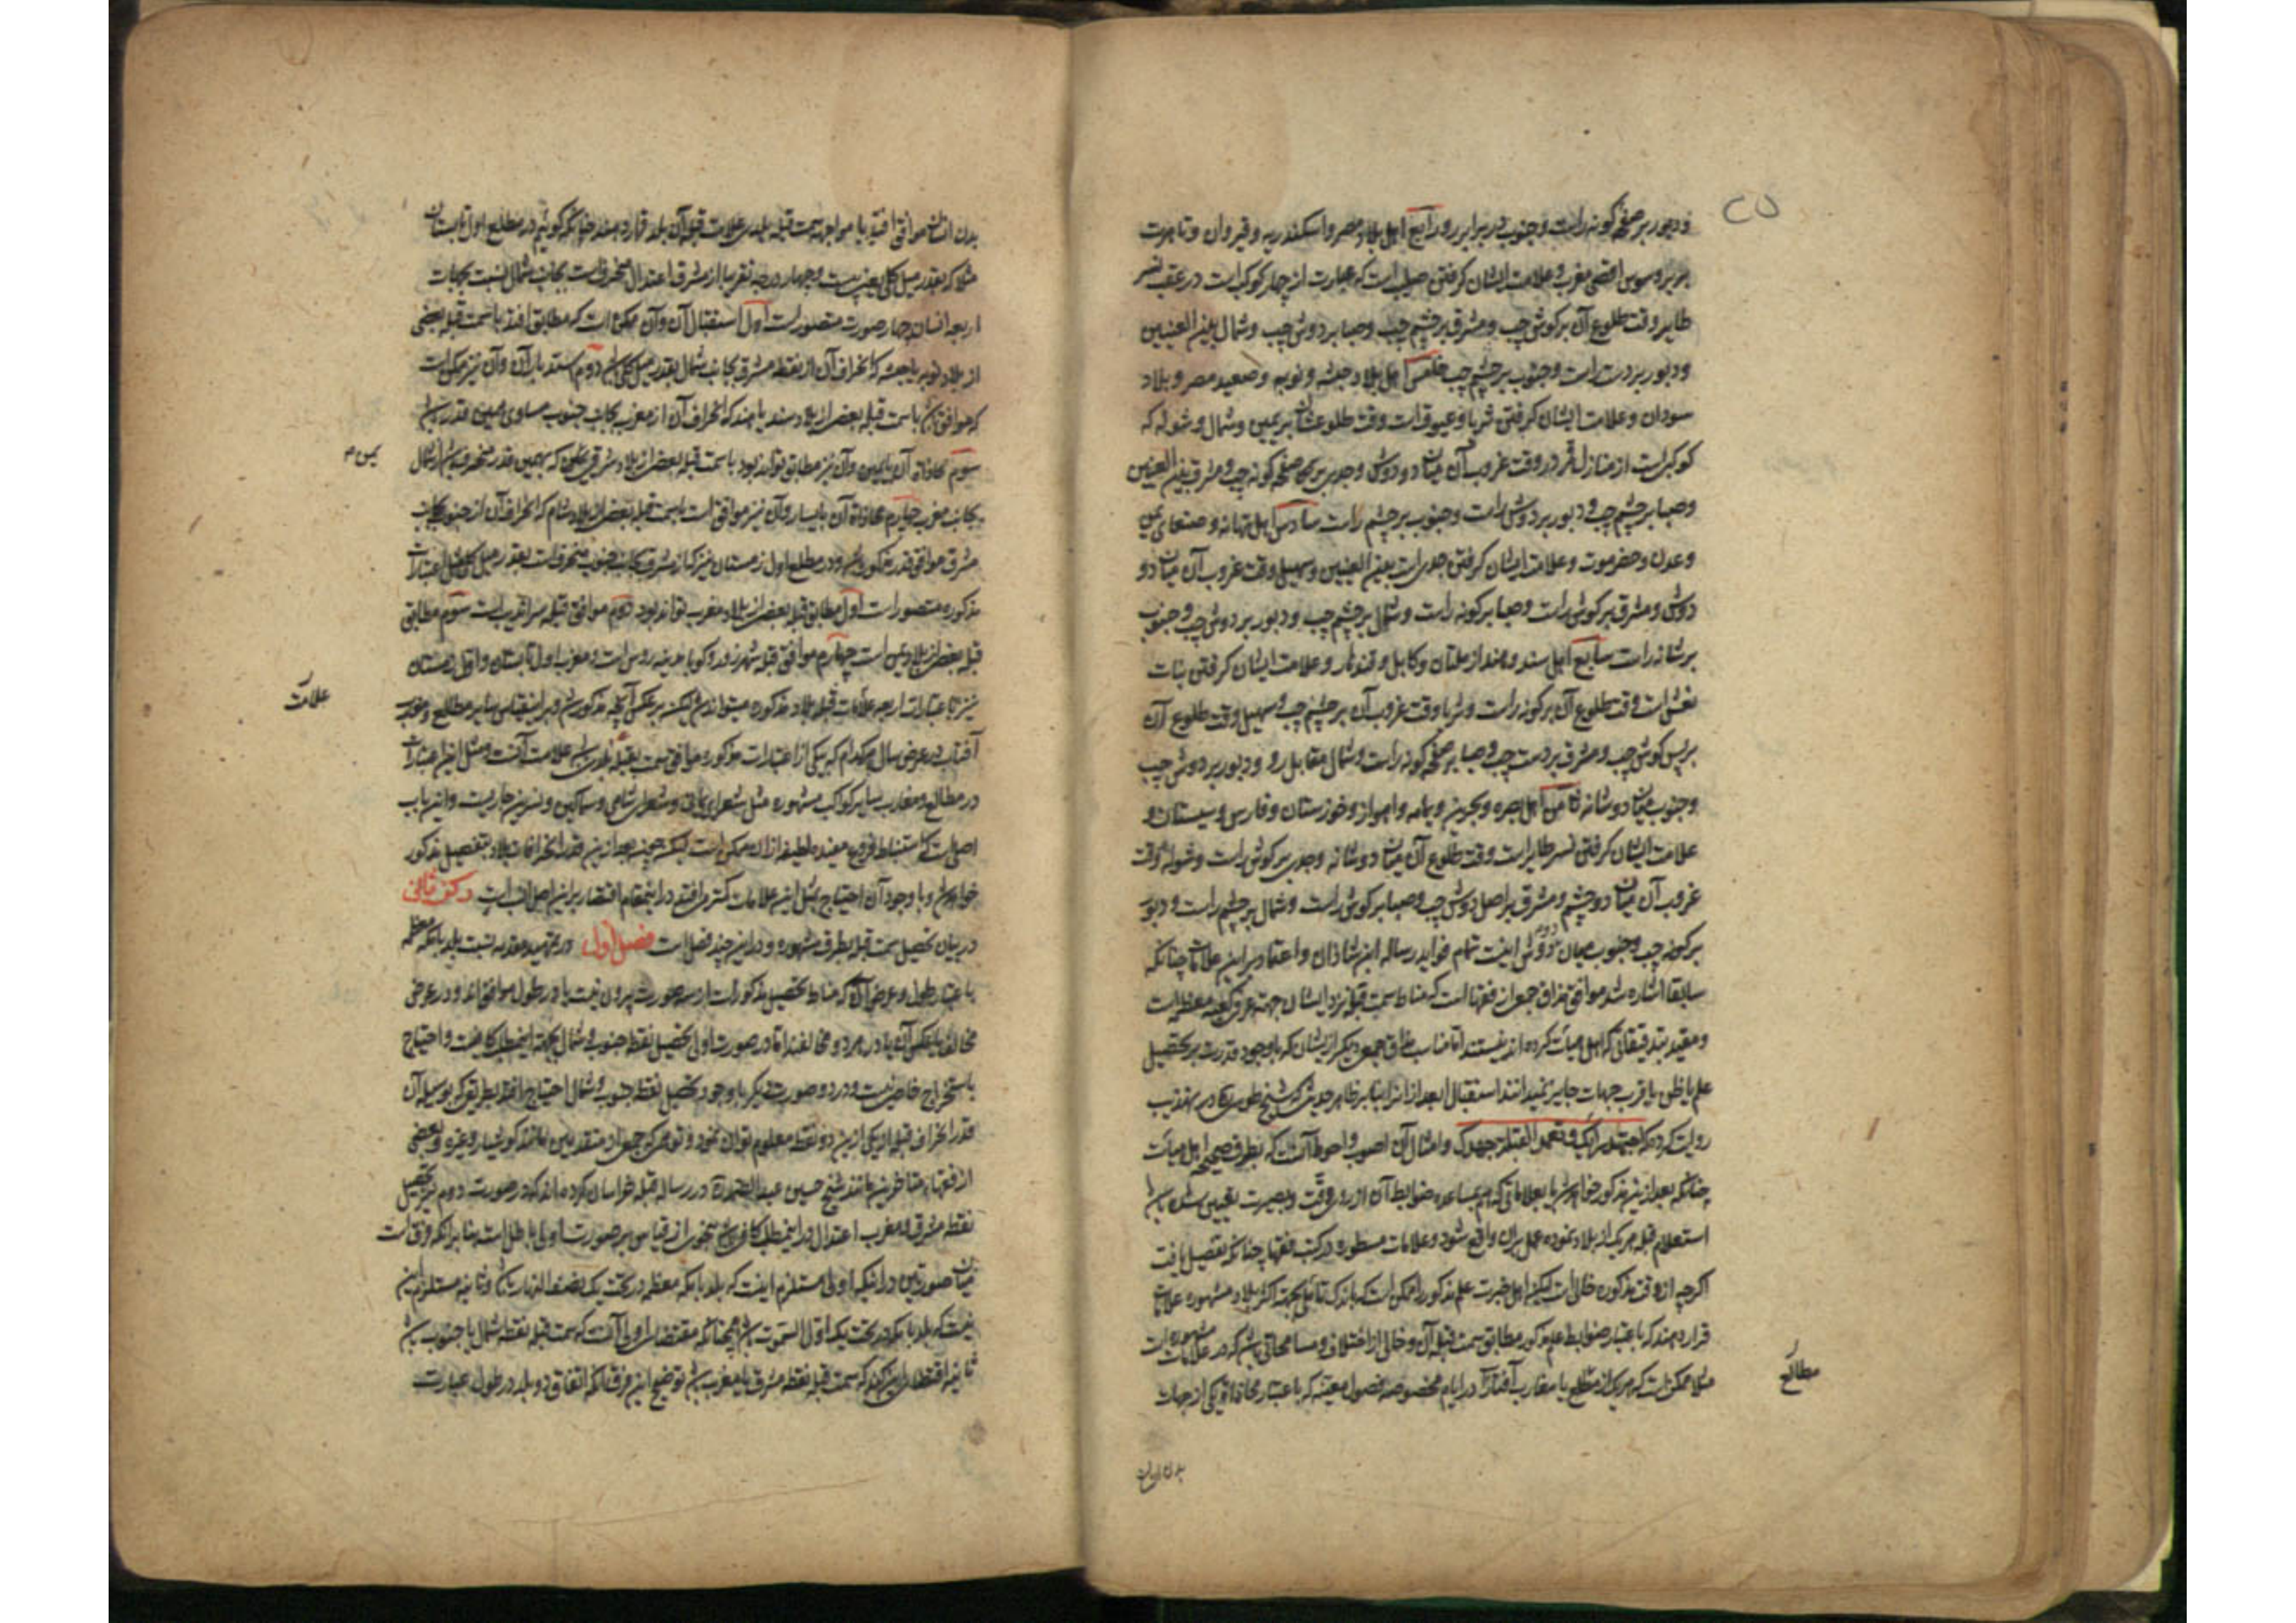 ودبور بر صفحه کونه راست وجنوب در برابر رو رابع اهل بلاد مصر واسکندریه وقیروان وتاهرت
بربر وسوس اقصی مغرب وعلامت ایشان کرفتن صلیب است که عبارت از چهار کوکب است در عقب نسر
طایر وقت طلوع آن بر کوش چپ ومشرق بر چشم چپ وصبا بر دوش چپ وشمال بین العینین
ودبور بر دست راست وجنوب بر چشم چپ خامس اهل بلاد حبشه ونوبه وصعید مصر وبلاد
سودان وعلامت ایشان کرفتن ثریا وعیوق است وقت طلوعشان بر یمین وشمال وشوله که
کوکبیست از منازل قمر در وقت غروب آن میان دو دوش وجدی بر صفحه کونه چپ ومشرق بین العینین
وصبا بر چشم چپ ودبور بر دوش راست وجنوب بر چشم راست سادس اهل تهامه وصنعای یمن
وعدن وحضرموت وعلامت ایشان کرفتن جدی است بین العینین وسهیل وقت غروب آن میان دو
دوش ومشرق بر کوش راست وصبا بر کونه راست وشمال بر چشم چپ ودبور بر دوش چپ وجنوب
بر شانه راست سابع اهل سند وهند از ملتان وکابل وقندهار وعلامت ایشان کرفتن بنات
نعش است وقت طلوع آن بر کونه راست وثریا وقت غروب آن بر چشم چپ وسهیل وقت طلوع آن
بر پس کوش چپ ومشرق بر دست چپ وصبا بر صفحه کونه راست وشمال مقابل رو ودبور بر دوش چپ
وجنوب میان دو شانه ثامن اهل بصره وبحرین ویمامه واهواز وخوزستان وفارس وسیستان و
علامت ایشان کرفتن نسر طایر است وقت طلوع آن میان دو شانه وجدی بر کوش راست وشوله وقت
غروب آن میان دو چشم ومشرق بر اصل دوش چپ وصبا بر کوش راست وشمال بر چشم راست ودبور
بر کونه چپ وجنوب میان دو دوش اینست تمام فواید رساله ابن شاذان واعتماد بر این علامات چنانکه
سابقا اشاره شد موافق مذاق جمعی از فقهاست که مناط سمت قبله نزد ایشان جهت عرفی کعبه معظمه است
ومقید بتدقیقاتی که اهل هیأت کرده‌اند نیستند اما مناسب مذاق جمعی دیکر از ایشان که با وجود قدرت بر تحصیل
علم یا ظن باقرب جهات جایز نمیدانند استقبال ابعد از انرا بنا بر ظاهر حدیثی که شیخ طوسی در تهذیب
روایت کرده که اجتهد رأیک وتعمد القبلة جهدک وامثال آن اصوب واحوط آنست که بطرف صحیحه اهل هیأت
چنانکه بعد ازین مذکور خواهد شد یا بعلاماتی که بمساعده ضوابط آن از روی دقت وبصیرت تعیین شده باشد
استعلام قبله هر یک از بلاد نموده عمل بران واقع شود وعلامات مسطوره در کتب فقها چنانکه تفصیل یافت
اکرچه از دقت مذکوره خالی است لیکن اهل خبرت علم مذکور را ممکن است که باندک تأملی بجهة اکثر بلاد مشهوره علامات
قرار دهند که باعتبار ضوابط علم مذکور مطابق سمت قبله آن وخالی از اختلاف ومسامحاتی باشد که در علامات مشهوره است
مثلا ممکن است که هر یک از مطالع یا مغارب آفتاب را در ایام مخصوصه فصول معینه که باعتبار محاذات یکی از جهات
مطالع
بدن انسان
بدن انسان موافق افتد با مواجهت سمت قبله بلدی علامت قبله آن بلد قرار دهند چنانکه کوئیم در مطلع اول تابستان
مثلا که بقدر میل کلی یعنی بیست وچهار درجه تقریبا از مشرق اعتدال منحرف است بجانب شمال نسبت بجهات
اربعه انسان چهار صورت متصور است اول استقبال آن وآن ممکن است که مطابق افتد با سمت قبله بعضی
از بلاد نوبه یا حبشه که انحراف آن از نقطه مشرق بجانب شمال بقدر میل کلی باشد دوم استدبار آن وآن نیز ممکن است
که موافق باشد با سمت قبله بعضی از بلاد سند یا هند که انحراف آن از مغرب بجانب جنوب مساوی همین قدر باشد
سوم محاذاة آن با یمین وآن نیز مطابق تواند بود با سمت قبله بعضی از بلاد شرقی یمن که بهمین قدر منحرف باشد از شمال
بجانب مغرب چهارم محاذاة آن با یسار وآن نیز موافق است با سمت قبله بعضی از بلاد شام که انحراف آن از جنوب بجانب
مشرق موافق قدر مذکور باشد ودر مطلع اول زمستان نیز که از مشرق بجانب جنوب منحرف است بقدر میل کلی مثل اعتبارات
مذکوره متصور است اول مطابق قبله بعضی از بلاد مغرب تواند بود دوم موافق قبله سراندیب است سوم مطابق
قبله بعضی از بلاد یمن است چهارم موافق قبله شهر زور وکوبا مدینه روس است ومغرب اول تابستان واول زمستان
نیز باعتبارات اربعه علامات قبله بلاد مذکوره میتواند شد لیکن بر عکس آنچه مذکور شد وبرین قیاس سایر مطالع ومغارب
آفتاب در عرض سال هر کدام که بیکی از اعتبارات مذکوره موافق سمت قبله بلدی باشد علامت آنست ومثل این اعتبارات
در مطالع ومغارب سایر کواکب مشهوره مثل شعرای یمانی وشعرای شامی وسماکین ونسرین جاریست واین باب
اصلی است که استنباط فروع مفیده لطیفه ازان ممکن است لیکن چون بعد ازین قدر انحرافات بلاد بتفصیل مذکور
خواهد شد وبا وجود آن احتیاج بمثل این علامات کمتر می افتد درینمقام اقتصار براین اصل انسب است رکن ثانی
در بیان تحصیل سمت قبله بطرف مشهوره ودر این چند فصل است فصل اول در تمهید مقدمه نسبت بلد با مکه معظمه
باعتبار طول وعرض آن که مناط تحصیل مذکور است از سه صورت بیرون نیست یا در طول موافق اند ودر عرض
مخالف یا بعکس آن یا در هر دو مخالفند اما در صورت اولی تحصیل نقطه جنوب وشمال بجهة اینمطلب کافیست واحتیاج
باستخراج خاص نیست ودر دو صورت دیکر با وجود تحصیل نقطه جنوب وشمال احتیاج افتد بطریقی که بوسیله آن
قدر انحراف قبله از یکی ازین دو نقطه معلوم توان نمود وتوهمی که جمعی از متقدمین مانند کوشیار وغیره وبعضی
از فقهاء متاخرین مانند شیخ حسین عبد الصمد در رساله قبله خراسان کرده‌اند که در صورت دوم نیز تحصیل
نقطه مشرق ومغرب اعتدال در اینمطلب کافی باشد بنحوی از قیاس بر صورت اولی باطل است بنا بر آنکه فرق است
میان صورتین در اینکه اولی مستلزم اینست که بلد با مکه معظمه در تحت یک نصف النهار باشد وثانیه مستلزم این
نیست که بلد با مکه در تحت یک اول السموت باشد همچنانکه مقتضای اولی آنست که سمت قبله نقطه شمال یا جنوب باشد
ثانیه اقتضای این کند که سمت قبله نقطه مشرق یا مغرب باشد توضیح این فرق آنکه اتفاق دو بلد در طول عبارت
یمین م
علامت